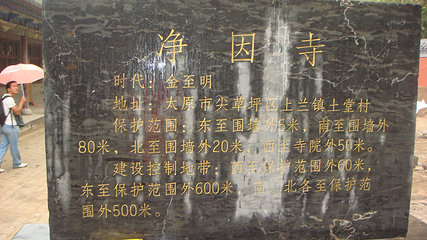 净因寺
时代：金至明
地址：太原市尖草坪区上兰镇土堂村
保护范围：东至围墙外5米，南至围墙外
80米，北至围墙外20米，西至寺院外50米。
建设控制地带：西至保护范围外60米，
东至保护范围外600米，南、北各至保护范
围外500米。